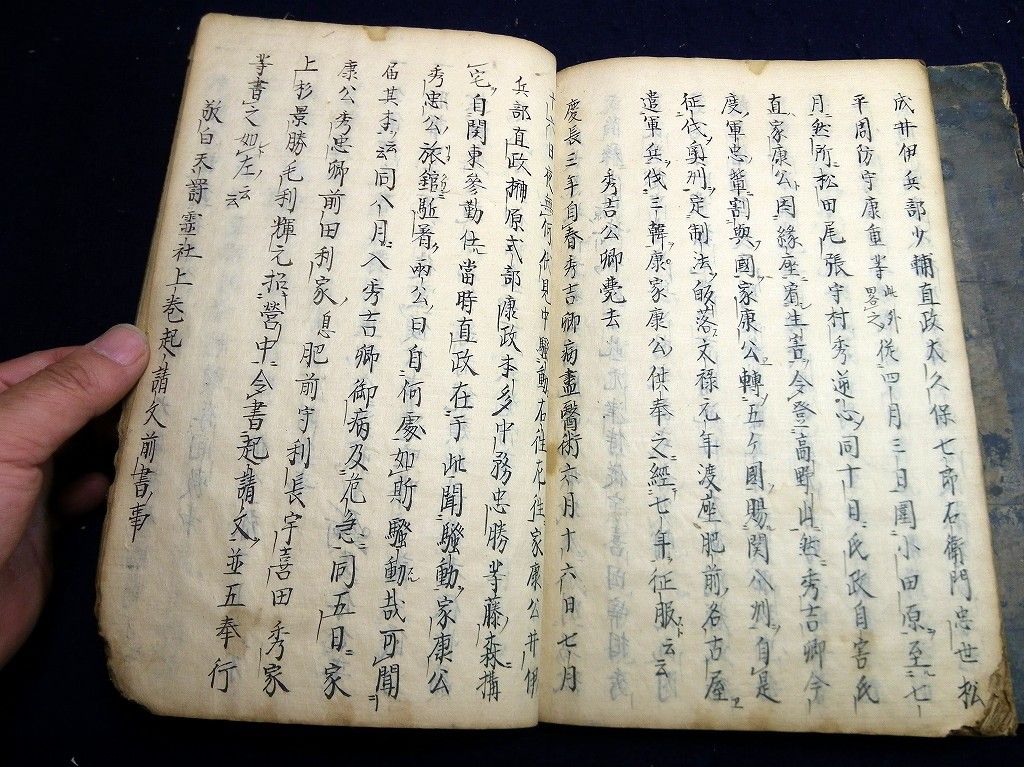 成井伊兵部少輔直政大久保七郎右衛門忠世松
平周防守康重等此外従略之四月三日囲小田原至七
月然所松田尾張守村秀逆心同十日氏政自害氏
直家康公因縁座宥生害令登高野山然秀吉卿今
度軍忠輩割與國家康公轉五ケ國賜関八州自是
征伐奥州定制法皈落文禄元年渡座肥前名古屋
遣軍兵伐三韓康家康公供奉之經七年征服云云
秀吉公卿薨去
慶長三年自春秀吉卿病盡醫術六月十六日七月
十六日夜無何伏見中騒動右往左往家康公井伊
兵部直政榊原式部康政本多中務忠勝等藤森搆
宅自関東参勤仕當時直政在于此聞騒動家康公
秀忠公旅舘馳着両公曰自何處如斯騒動哉可聞
届其李云云同八月入秀吉卿御病及危急同五日家
康公秀忠卿前田利家息肥前守利長宇喜田秀家
上杉景勝毛利輝元招營中令書起請文並五奉行
等書之如左云云
敬白天罸靈社上巻起請文前書事